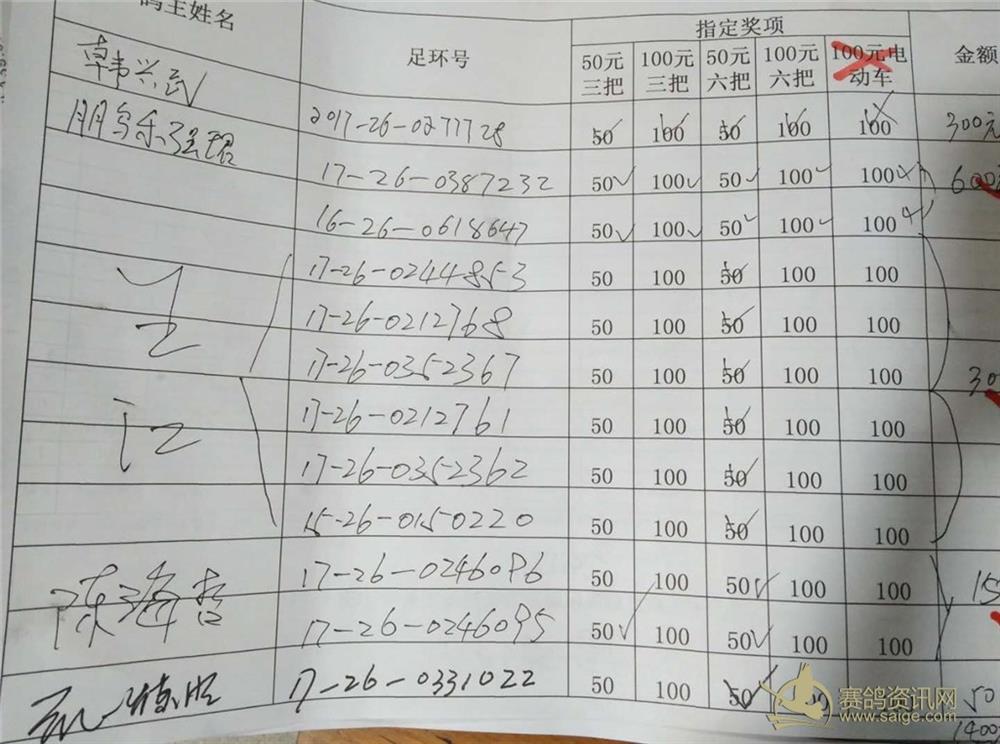 鸽主姓名 足环号 指定奖项 金额
50元三把 100元三把 50元六把 100元六把 100元电动车
韩兴武
朋鸟乐 2017-26-0277728 50 100 50 100 100 300元
17-26-0387232 50 100 50 100 100 600
16-26-0618647 50 100 50 100 100
17-26-0244853 50 100 50 100 100
17-26-0212768 50 100 50 100 100
17-26-0352367 50 100 50 100 100 30
17-26-0212761 50 100 50 100 100
17-26-0352362 50 100 50 100 100
15-26-0150220 50 100 50 100 100
陈海哲 17-26-0246096 50 100 50 100 100 15
17-26-0246095 50 100 50 100 100
17-26-0331022 50 100 50 50
1400
赛鸽资讯网
www.saige.com